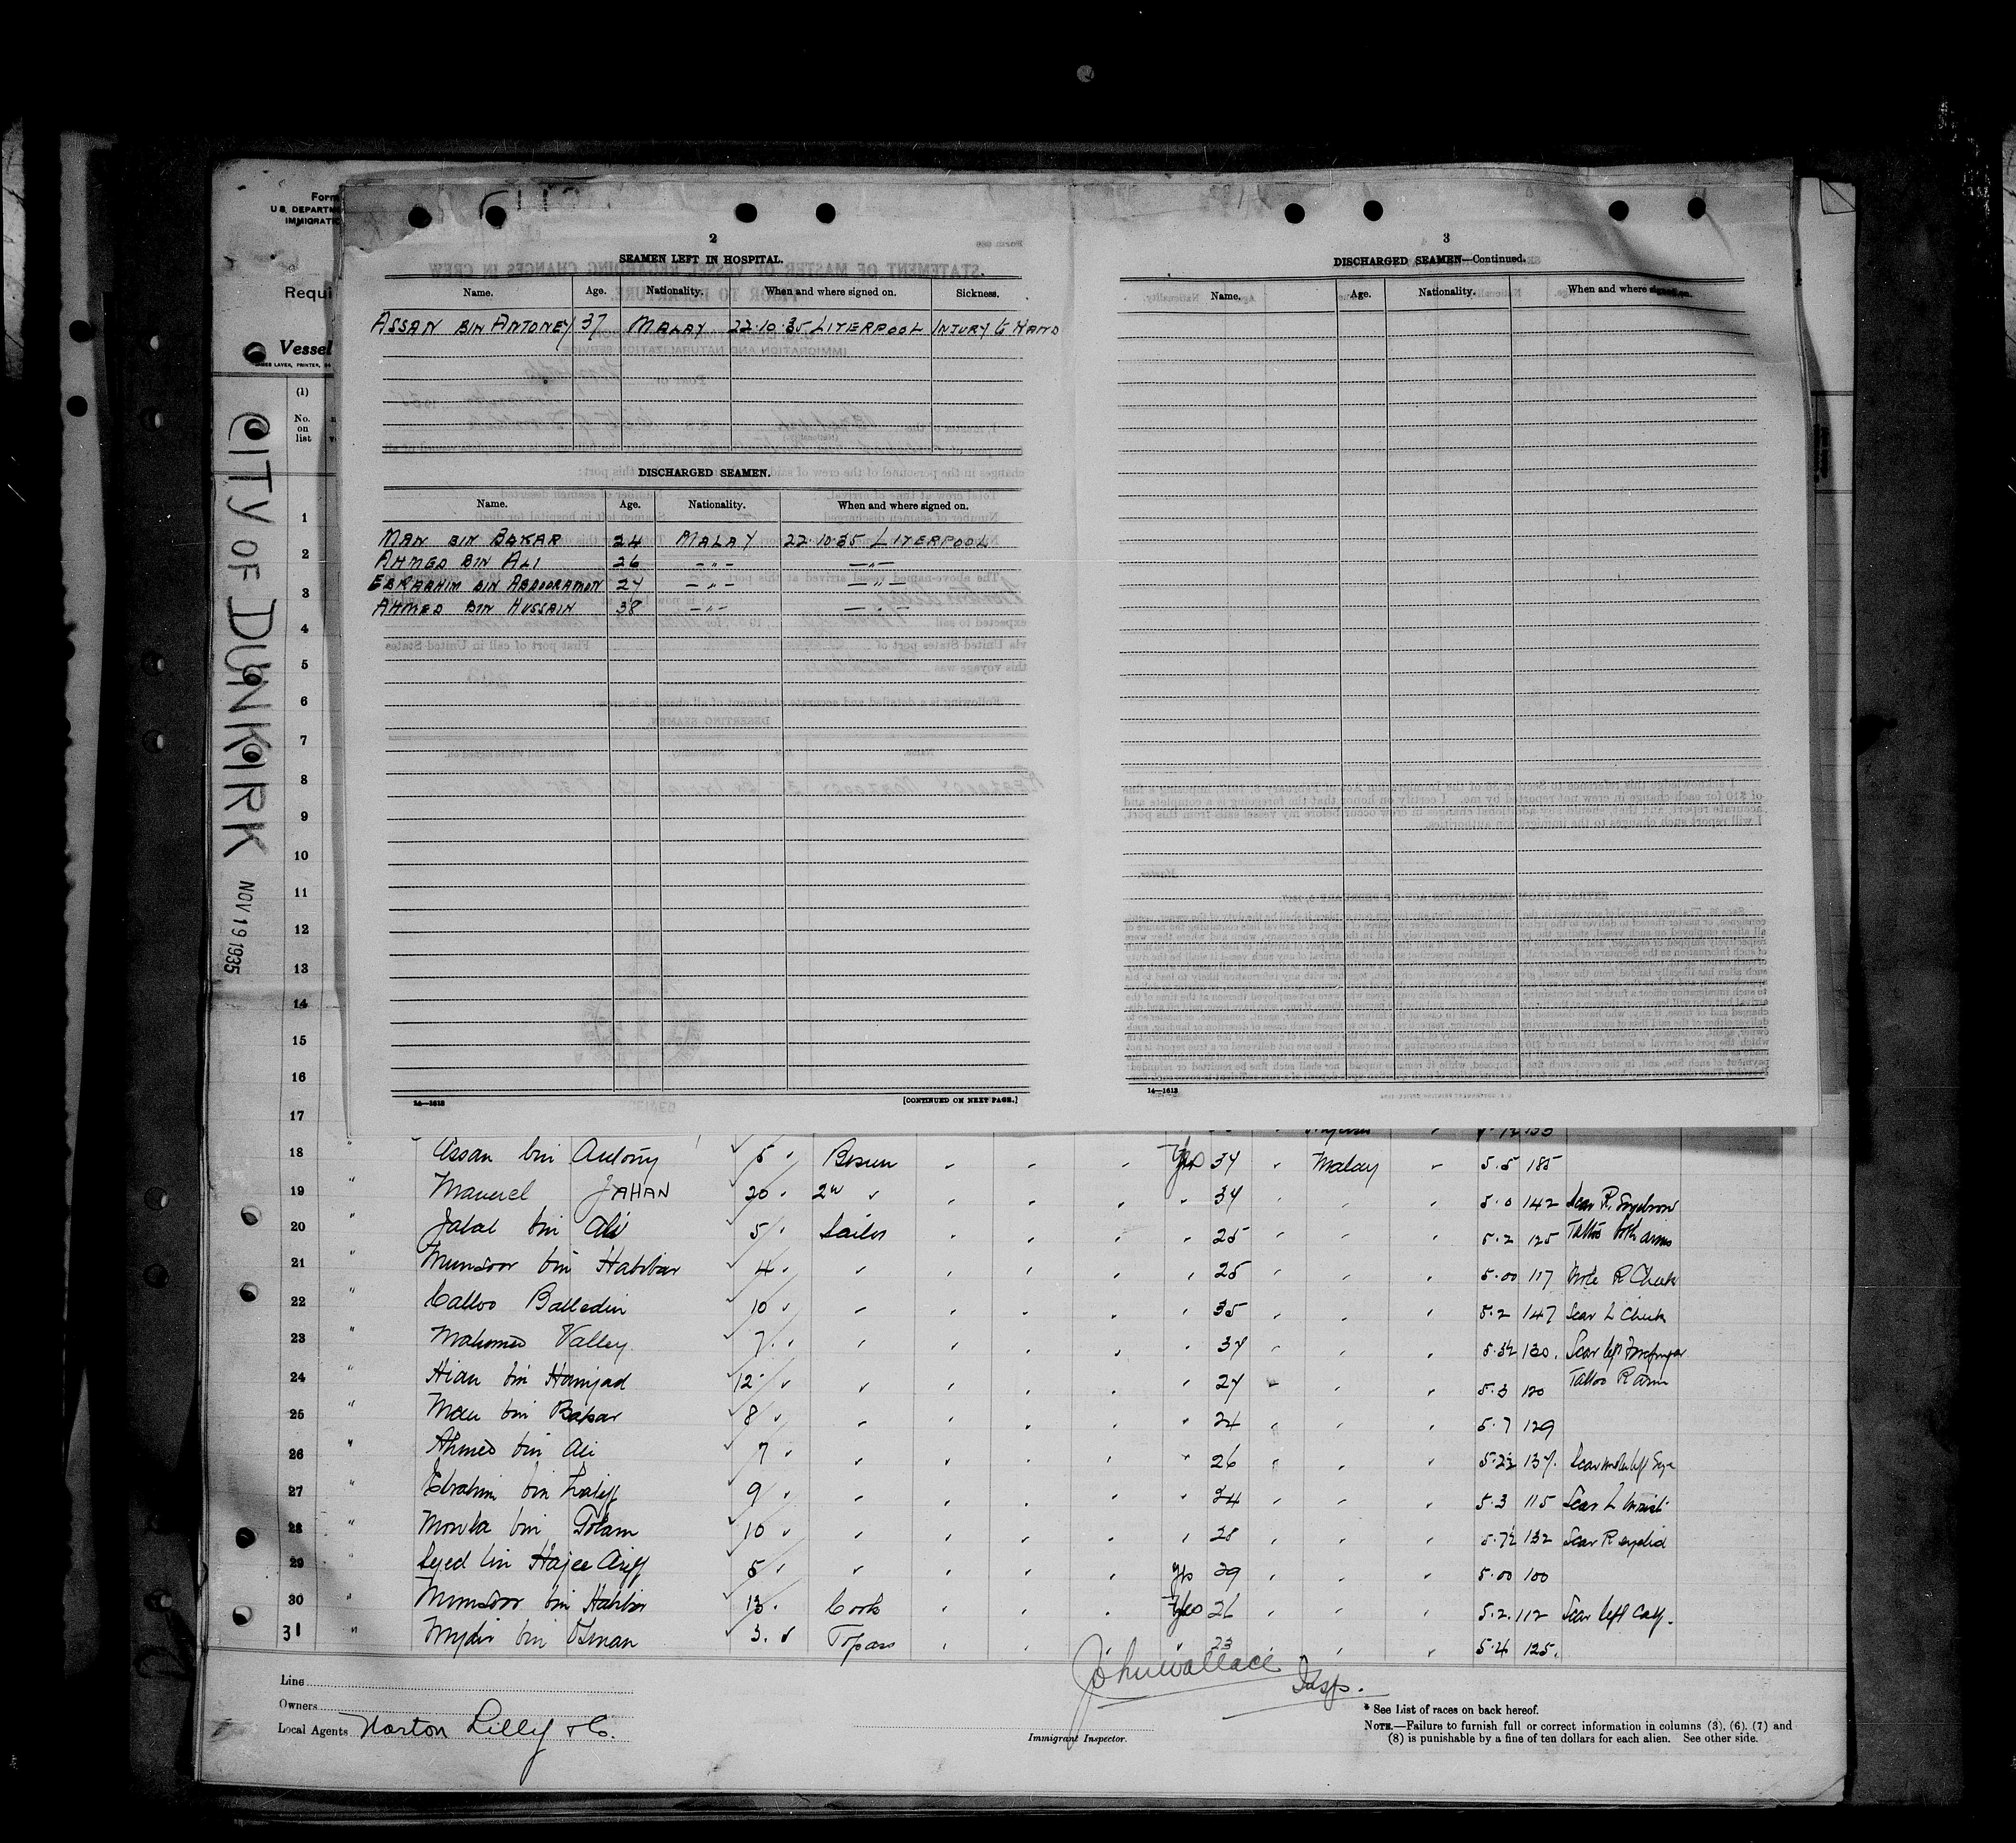 Form
U.S. DEPARTME
IMMIGRATIO
Requi
Vessel
(1)
No. on list
CITY OF DUNKIRK NOV 19 1935
2
SEAMEN LEFT IN HOSPITAL.
Name. Age. Nationality. When and where signed on. Sickness.
ASSAN BIN ANTONEY 37 MALAY 22·10·35 LIVERPOOL INJURY TO HAND
DISCHARGED SEAMEN.
Name. Age. Nationality. When and where signed on.
MAN BIN BAKAR 24 MALAY 22·10·35 LIVERPOOL
AHMED BIN ALI 26 -"- -"-
EBRAHIM BIN ABDOORAMON 24 -"- -"-
AHMED BIN HUSSAIN 38 -"- -"-
14—1613 [CONTINUED ON NEXT PAGE.]
3
DISCHARGED SEAMEN—Continued.
Name. Age. Nationality. When and where signed on.
14—1613
1
2
3
4
5
6
7
8
9
10
11
12
13
14
15
16
17
18 " Assan bin Antony 5 Bosun Yes 37 Malay 5.5 185
19 " Manuel JAHAN 20 2nd " 34 5.0 142 Scar R. Eyebrow
20 " Jalal bin Ali 5 Sailor " 25 5.2 125 Tattoo both arms
21 " Munsoor bin Habibar 4 " 25 5.00 117 Mole R Cheek
22 " Calloo Balledin 10 " 35 5.2 147 Scar L Cheek
23 " Mahomed Valley 7 " 34 5.3½ 130. Scar left Forefinger
24 " Hian bin Hamjad 12 " 27 5.3 120 Tattoo R arm
25 " Man bin Bakar 8 " 24 5.7 129
26 " Ahmed bin Ali 7 " 26 5.2½ 137. Scar under left Eye
27 " Ebrahim bin Latiff 9 " 24 5.3 115 Scar L Wrist
28 " Mowla bin Golam 10 " 28 5.7½ 132 Scar R eyelid
29 " Syed bin Hajee Ariff 5 " yes 39 5.00 100
30 " Munsoor bin Habibar 13 Cook Yes 26 5.2. 112 Scar left Calf.
31 " Mydin bin Osman 3. Topass " 23 5.4 125.
Line
Owners
Local Agents Norton Lilly & Co.
John Wallace Insp.
Immigrant Inspector.
* See List of races on back hereof.
NOTE.—Failure to furnish full or correct information in columns (3), (6), (7) and
(8) is punishable by a fine of ten dollars for each alien. See other side.